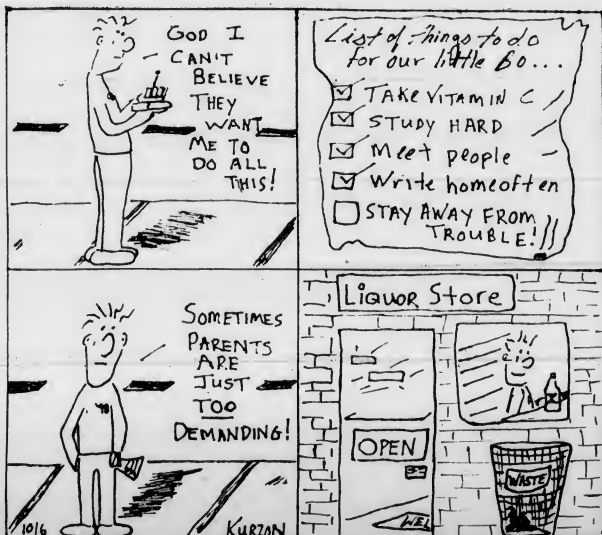 GOD I
CAN'T
BELIEVE
THEY
WANT
ME TO
DO ALL
THIS!
List of things to do
for our little Bo...
TAKE VITAMIN C
STUDY HARD
Meet people
Write home often
STAY AWAY FROM
TROUBLE!
SOMETIMES
PARENTS
ARE
JUST
TOO
DEMANDING!
'90
10/6
KURZON
Liquor Store
OPEN
WEL
WASTE